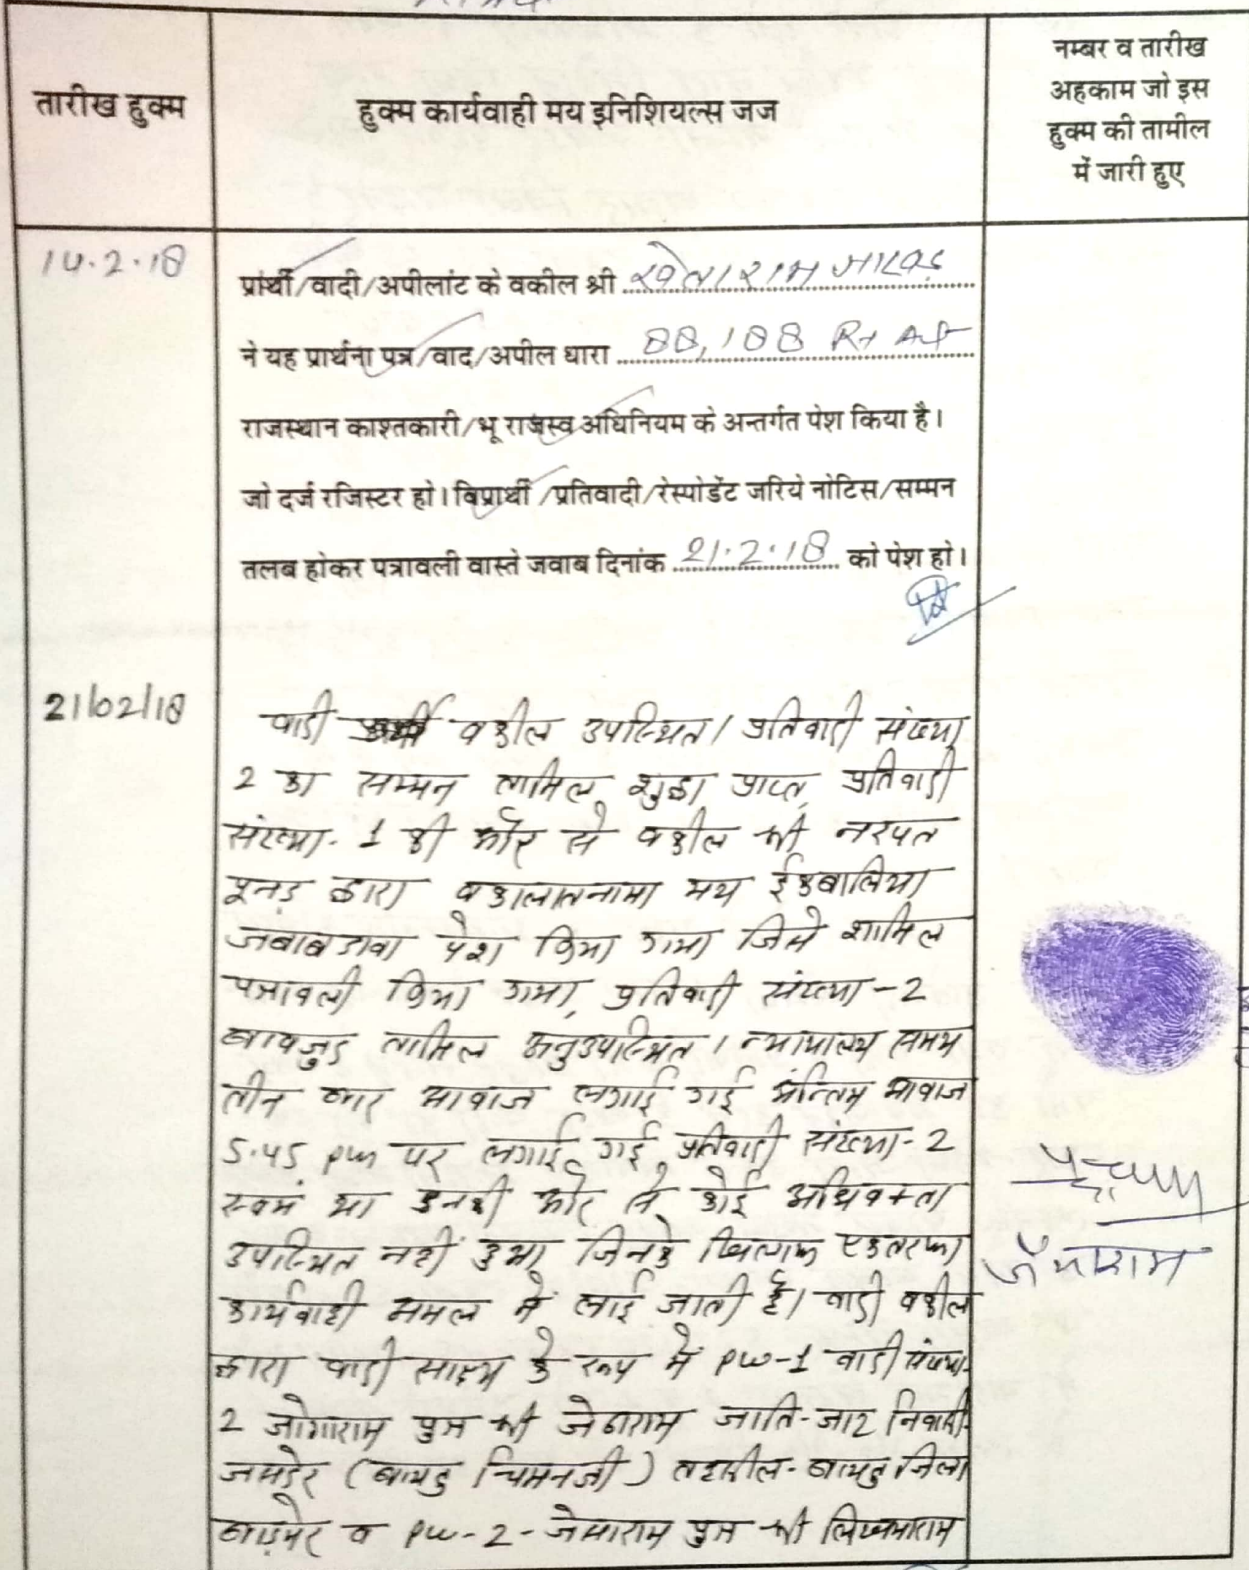 तारीख हुक्म
हुक्म कार्यवाही मय इनिशियल्स जज
नम्बर व तारीख
अहकाम जो इस
हुक्म की तामील
में जारी हुए
14.2.18
प्रार्थी/वादी/अपीलांट के वकील श्री खेताराम
ने यह प्रार्थना पत्र/वाद/अपील धारा 88, 188 Rt Act
राजस्थान काश्तकारी/भू राजस्व अधिनियम के अन्तर्गत पेश किया है।
जो दर्ज रजिस्टर हो। विप्रार्थी/प्रतिवादी/रेस्पोडेंट जरिये नोटिस/सम्मन
तलब होकर पत्रावली वास्ते जवाब दिनांक 21.2.18 को पेश हो।
21/02/18
वादी वकील उपस्थित। प्रतिवादी संख्या
2 का सम्मन तामिल शुदा प्राप्त, प्रतिवादी
संख्या-1 की ओर से वकील श्री नरपत
द्वारा वकालातनामा मय ईकबालिया
जवाबदावा पेश किया गया जिसे शामिल
पत्रावली किया गया, प्रतिवादी संख्या-2
बावजुद तामिल अनुउपस्थित। न्यायालय समय
तीन बार आवाज लगाई गई अन्तिम आवाज
5.45 pm पर लगाई गई, प्रतिवादी संख्या-2
स्वयं या उनकी ओर से कोई अधिवक्ता
उपस्थित नहीं हुआ जिनके खिलाफ एकतरफा
कार्यवाही अमल में लाई जाती है। वादी वकील
द्वारा वादी साक्ष्य के रूप में PW-1 वादी संख्या-
2 जोगाराम पुत्र श्री जेठाराम जाति-जाट निवासी-
(बायतु चिमनजी) तहसील-बायतु जिला
बाड़मेर व PW-2-जेमाराम पुत्र श्री लिखमाराम